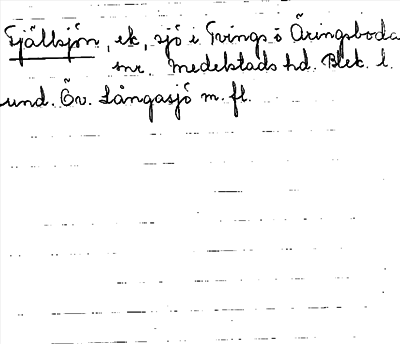 Fjällsjön, ek, sjö i Tvings o Äringsboda
snr. Medelstads hd. Blek. l.
und. Öv. Långasjö m. fl.